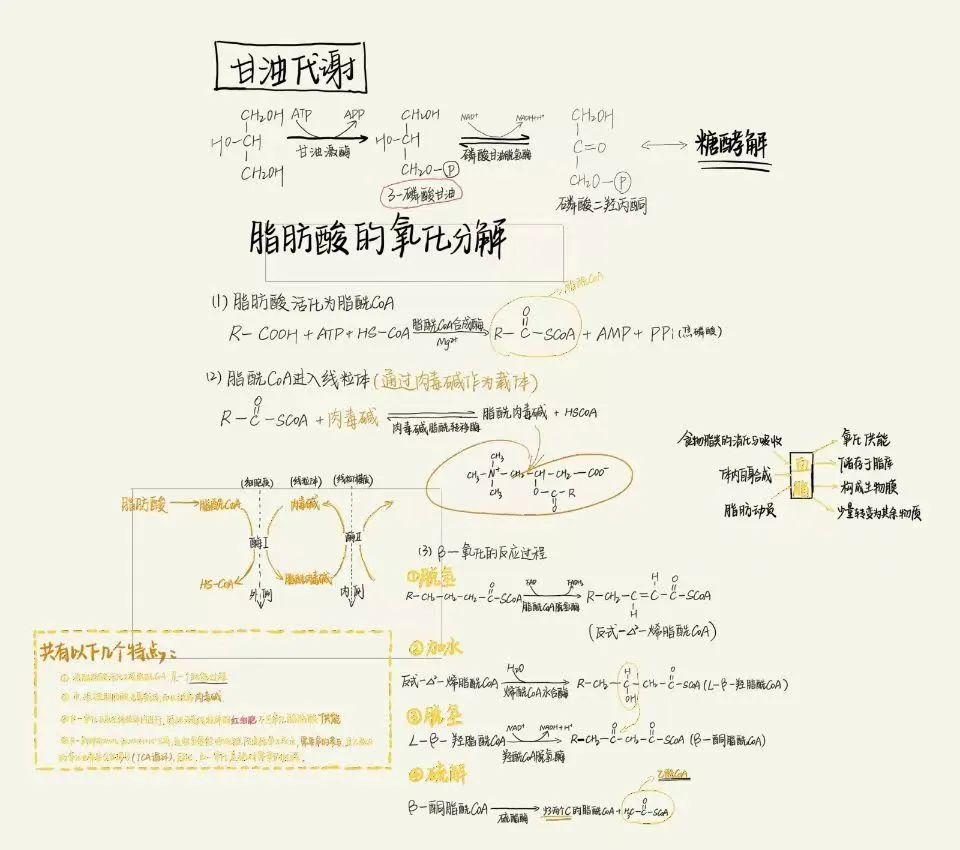 甘油代谢
CH₂OH ATP ADP CH₂OH NAD⁺ NADH+H⁺ CH₂OH
HO-CH HO-CH C=O
CH₂OH 甘油激酶 CH₂O-P 磷酸甘油脱氢酶 CH₂O-P
3-磷酸甘油 磷酸二羟丙酮
糖酵解
脂肪酸的氧化分解
脂酰CoA
(1) 脂肪酸活化为脂酰CoA
R-COOH + ATP + HS-CoA 脂酰CoA合成酶 Mg²⁺ R-C-SCoA + AMP + PPi (焦磷酸)
O
(2) 脂酰CoA进入线粒体(通过肉毒碱作为载体)
O
R-C-SCOA + 肉毒碱 肉毒碱脂酰转移酶 脂酰肉毒碱 + HSCOA
CH₃
CH₃-N⁺-CH₂-CH-CH₂-COO⁻
CH₃ O-C-R
O
食物脂类的消化与吸收 氧化供能
体内自身合成 储存于脂库
脂肪动员 构成生物膜
少量转变为其余物质
血脂
(细胞质) (线粒体)
脂肪酸 脂酰CoA 肉毒碱
酶Ⅰ 酶Ⅱ
HS-CoA 脂酰肉毒碱
外侧 内侧
(3) β-氧化的反应过程
①脱氢
R-CH₂-CH₂-CH₂-C-SCoA FAD FADH₂ 脂酰CoA脱氢酶 R-CH₂-C=C-C-SCoA
(反式-Δ²-烯脂酰CoA)
②加水
反式-Δ²-烯脂酰CoA H₂O 烯酰CoA水合酶 R-CH₂-C-CH₂-C-SCoA (L-β-羟脂酰CoA)
H OH O
③脱氢
L-β-羟脂酰CoA NAD⁺ NADH+H⁺ 羟酰CoA脱氢酶 R-CH₂-C-CH₂-C-SCoA (β-酮脂酰CoA)
④硫解
乙酰CoA
β-酮脂酰CoA 硫酯酶 少两个C的脂酰CoA + H₃C-C-SCoA
共有以下几个特点:
①
② 肉毒碱
③ 红细胞 供能
④ (TCA循环)